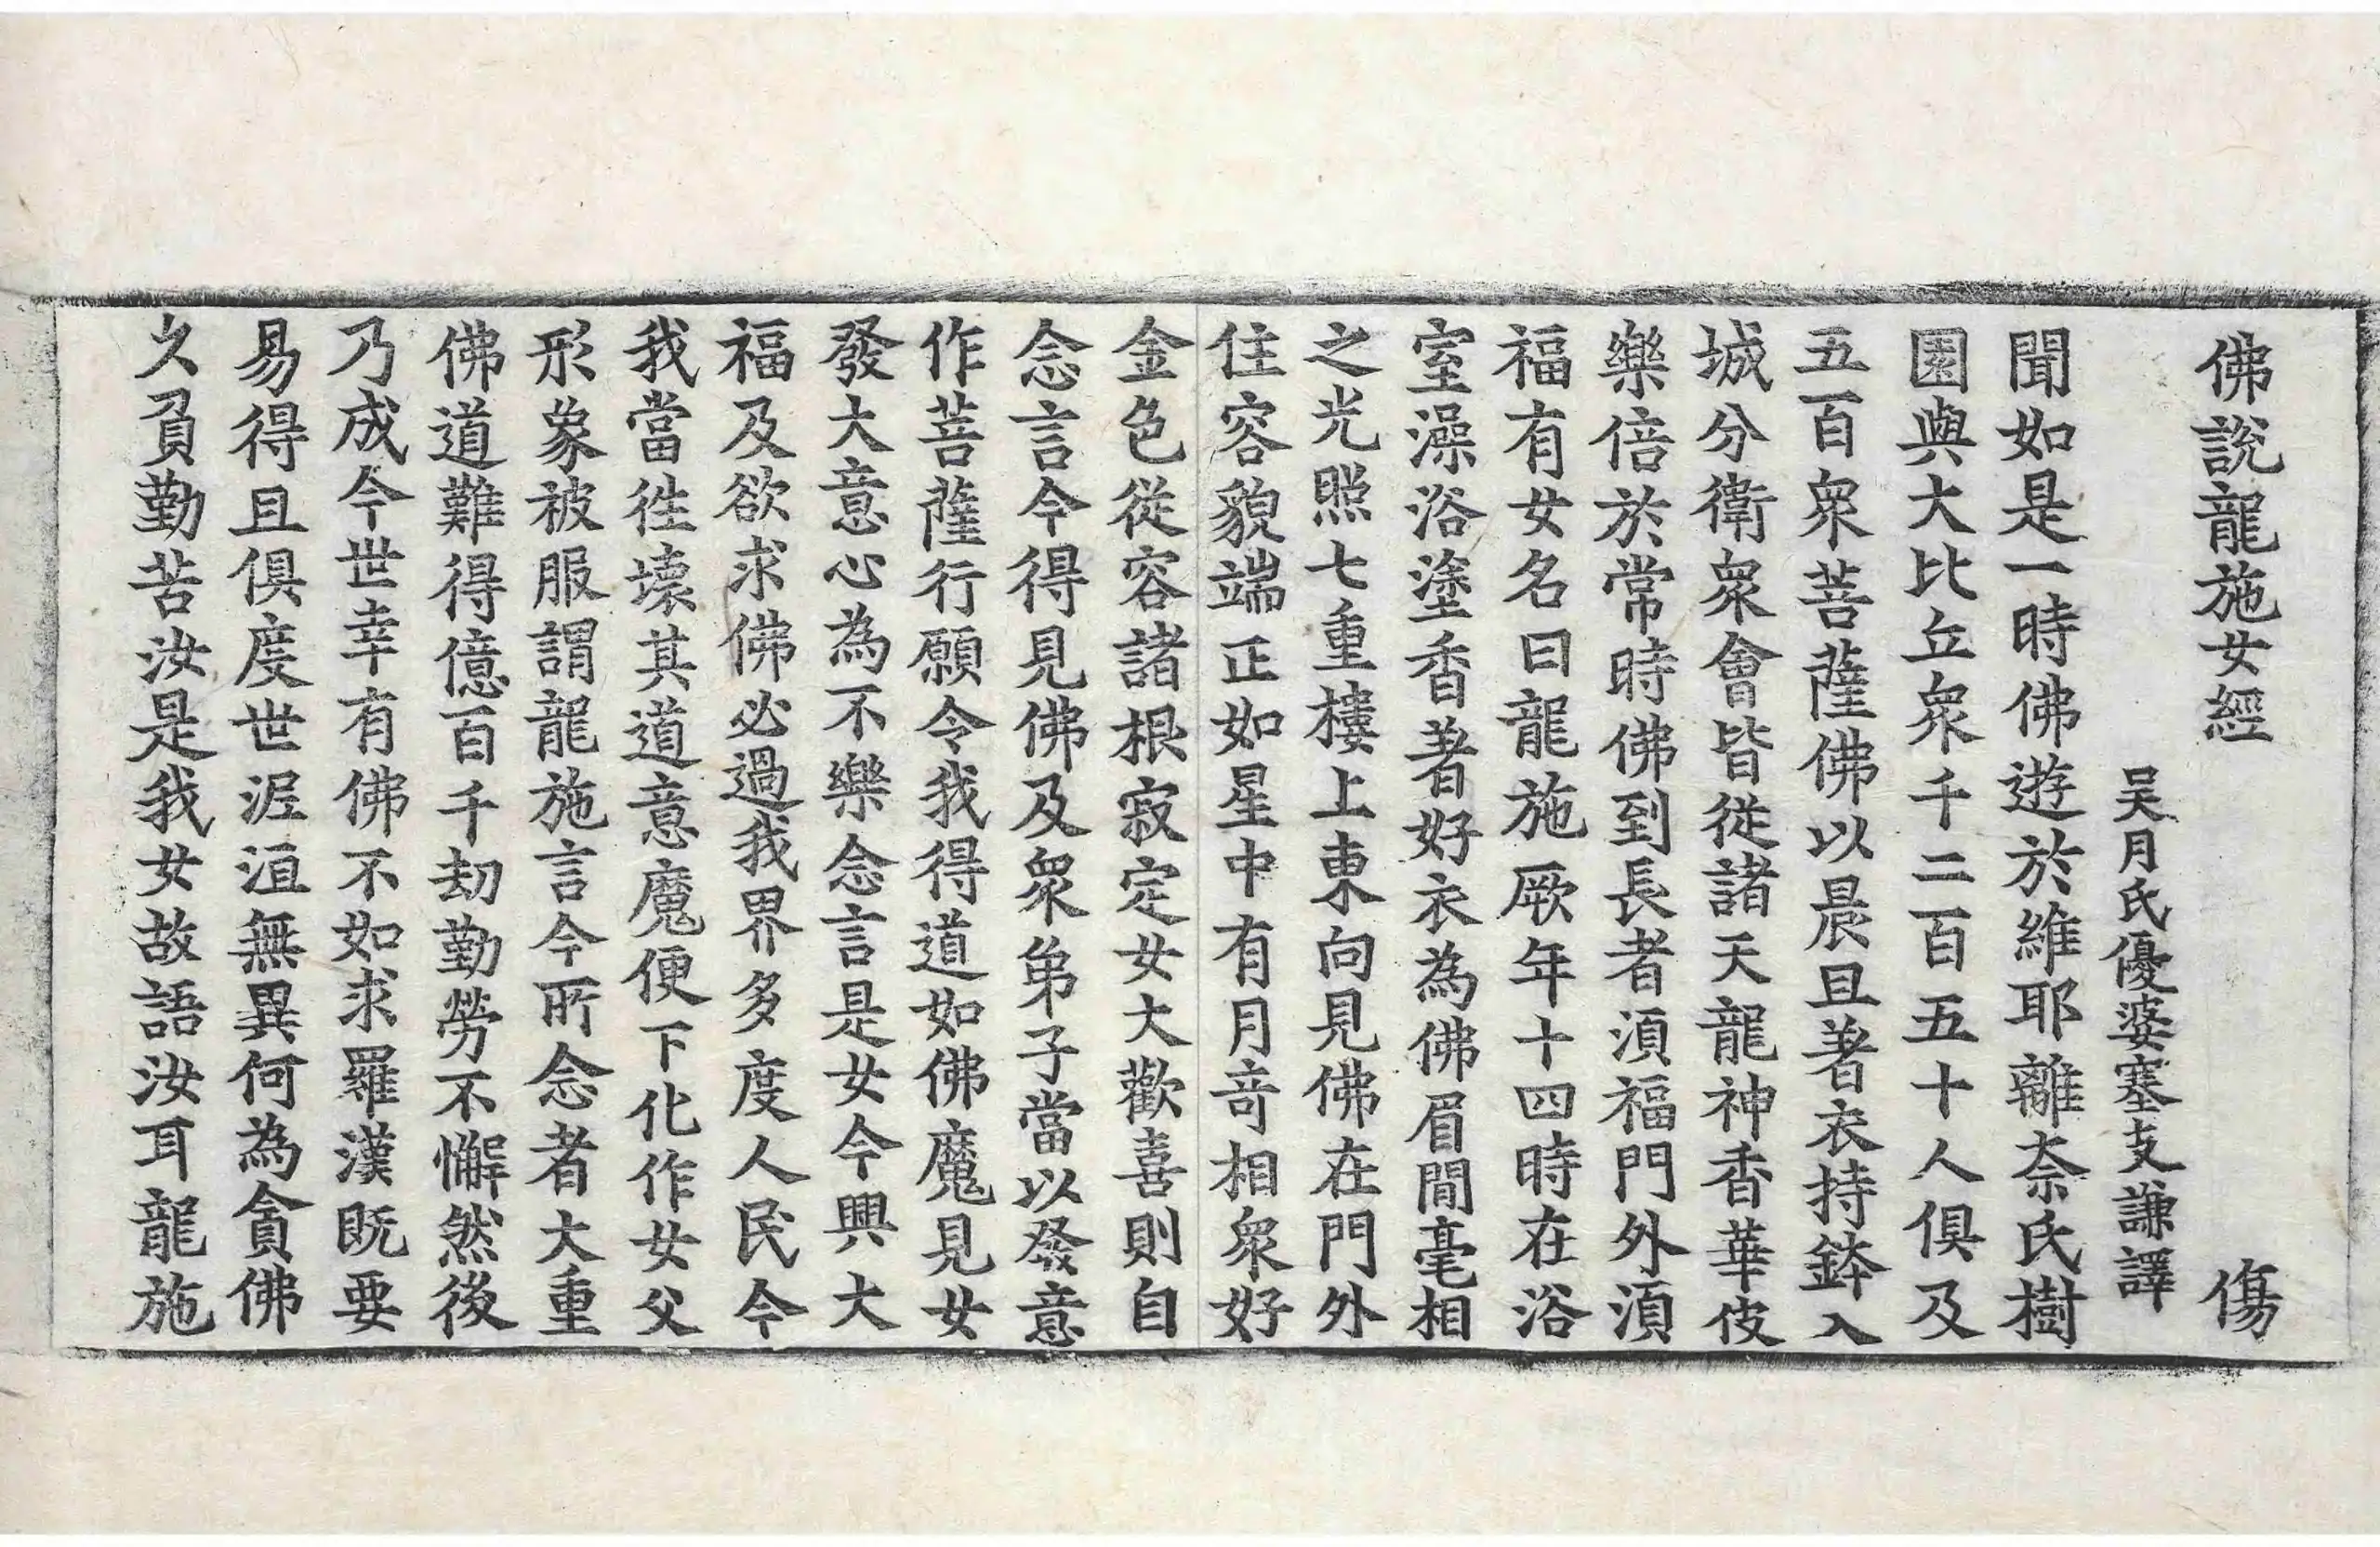 佛說龍施女經 傷
吳月氏優婆塞支謙譯
聞如是一時佛遊於維耶離柰氏樹
園與大比丘衆千二百五十人俱及
五百衆菩薩佛以晨旦著衣持鉢入
城分衛衆會皆從諸天龍神香華伎
樂倍於常時佛到長者湏福門外湏
福有女名曰龍施厥年十四時在浴
室澡浴塗香著好衣為佛眉間毫相
之光照七重樓上東向見佛在門外
住容貌端正如星中有月竒相衆好
金色從容諸根寂定女大歡喜則自
念言今得見佛及衆弟子當以發意
作菩薩行願令我得道如佛魔見女
發大意心為不樂念言是女今興大
福及欲求佛必過我界多度人民今
我當徃壞其道意魔便下化作女父
形象被服謂龍施言今所念者大重
佛道難得億百千劫勤勞不懈然後
乃成今世幸有佛不如求羅漢既要
易得且俱度世泥洹無異何為貪佛
久負勤苦汝是我女故語汝耳龍施